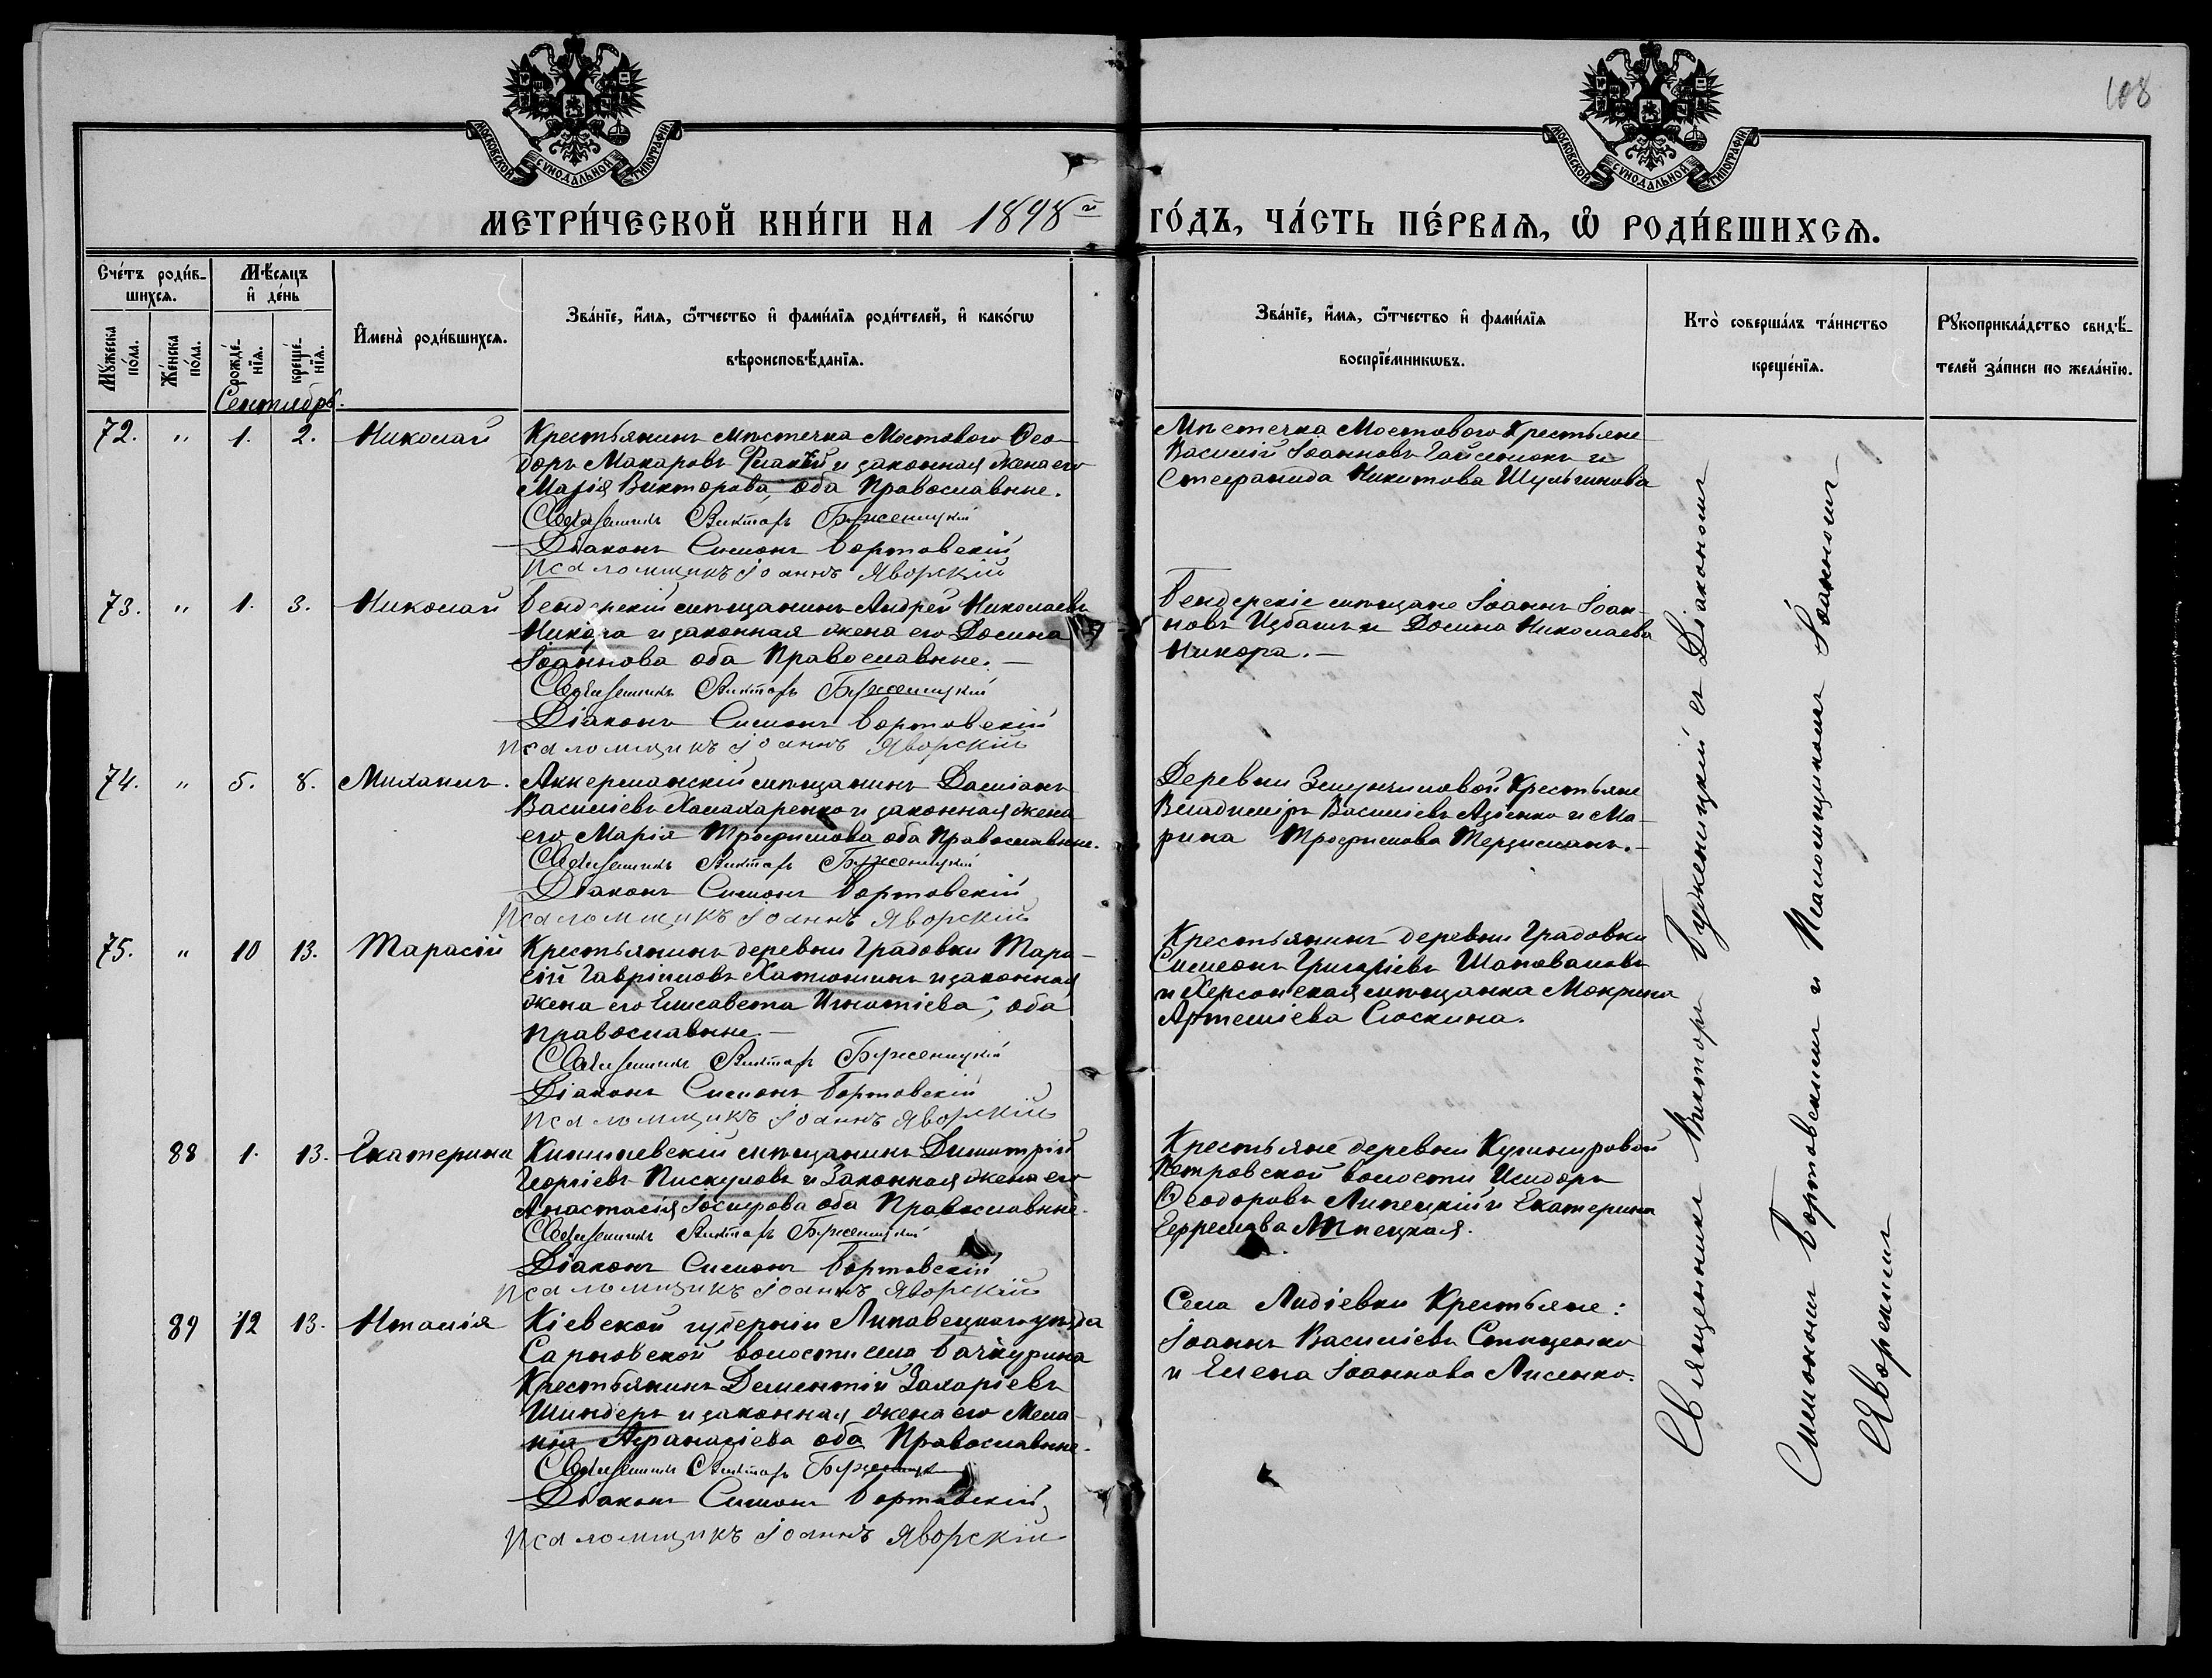 108
МОСКОВСКОЙ СѴНОДАЛЬНОЙ ТИПОГРАФІИ
МОСКОВСКОЙ СѴНОДАЛЬНОЙ ТИПОГРАФІИ
МЕТРИ́ЧЕСКОЙ КНИ́ГИ НА 1898й ГО́ДЪ, ЧА́СТЬ ПЕ́РВАЯ, Ѿ РОДИ́ВШИХСЯ.
Сче́тъ роди́в-
шихся.
Мѣ́сяцъ
и҆ де́нь
Му́жеска
по́ла.
Же́нска
по́ла.
рожде́-
нїя.
креще́-
нїя.
И҆мена̀ роди́вшихся.
Зва́нїе, и҆́мя, ѻ҆́тчество и҆ фами́лїя роди́телей, и҆ како́гѡ
вѣроисповѣ́данїя.
Зва́нїе, и҆́мя, ѻ҆́тчество и҆ фами́лїя
воспрїе́мникѡвъ.
Кто̀ соверша́лъ та́инство
креще́нїя.
Рукоприкла́дство свидѣ́-
телей за́писи по жела́нїю.
Сентябрь.
72. " 1. 2. Николай
Крестьянинъ мѣстечка Мостового Ѳео-
доръ Макаровъ и законная жена его
Марія Викторова оба Православные.
Священникъ Викторъ Буженицкій
Діаконъ Симонъ Бортовскій
Псаломщикъ Іоаннъ Яворскій
Мѣстечка Мостового Крестьяне
Василій Іоанновъ и
Стефанида Никитова Шульгинова
73. " 1. 3. Николай
Бендерскій мѣщанинъ Андрей Николаевъ
Никора и законная жена его Домна
Іоаннова оба Православные. —
Священникъ Викторъ Буженицкій
Діаконъ Симонъ Бортовскій
Псаломщикъ Іоаннъ Яворскій
Бендерскіе мѣщане Іоаннъ Іоан-
новъ Избашъ и Домна Николаева
Никора. —
74. " 5. 8. Михаилъ.
Аккерманскій мѣщанинъ Даміанъ
Василіевъ Хамахаренко и законная жена
его Марія Трофимова оба Православные.
Священникъ Викторъ Буженицкій
Діаконъ Симонъ Бортовскій
Псаломщикъ Іоаннъ Яворскій
Деревни Крестьяне
Владиміръ Василіевъ и Ма-
рина Трофимова Терзиманъ. —
75. " 10 13. Тарасій
Крестьянинъ деревни Градовки Тара-
сій Гавріиловъ Катюшинъ и законная
жена его Елисавета Игнатіева; оба
православные. —
Священникъ Викторъ Буженицкій
Діаконъ Симонъ Бортовскій
Псаломщикъ Іоаннъ Яворскій
Крестьянинъ деревни Градовки
Симеонъ Григоріевъ Шаповаловъ
и Херсонская мѣщанка Мокрина
Артеміева Сюскина.
88 1. 13. Екатерина
Кишиневскій мѣщанинъ Димитрій
Георгіевъ Пискуновъ и Законная жена его
Анастасія Іосифова оба Православные.
Священникъ Викторъ Буженицкій
Діаконъ Симонъ Бортовскій
Псаломщикъ Іоаннъ Яворскій
Крестьяне деревни
Петровской волости Исидоръ
Ѳеодоровъ Липецкій и Екатерина
Ефремова Липецкая.
89 12 13. Наталія
Кіевской губерніи Липовецкаго уѣзда
Сарновской волости села Бачкурина
Крестьянинъ Дементій Захаріевъ
Шиндеръ и законная жена его Мела-
нія Афанасіева оба Православные.
Священникъ Викторъ Буженицкій
Діаконъ Симонъ Бортовскій
Псаломщикъ Іоаннъ Яворскій
Села Лидіевки Крестьяне:
Іоаннъ Василіевъ Стаценко
и Елена Іоаннова Лисенко.
Священникъ Викторъ Буженицкій съ Діакономъ
Симономъ Бортовскимъ и Псаломщикомъ Іоанномъ
Яворскимъ